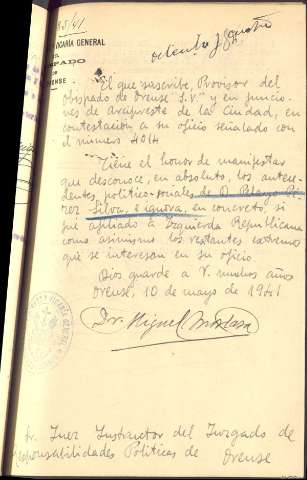 85/41
VICARÍA GENERAL
DEL
OBISPADO
DE
ORENSE
ochenta y cuatro
El que suscribe, Provisor del
Obispado de Orense "S.V." y en funcio-
nes de Arcipreste de la Ciudad, en
contestación a su oficio señalado con
el número 4814
Tiene el honor de manifestar
que desconoce, en absoluto, los antece-
dentes, político-sociales de D. Pelayo Pé-
rez Silva, e ignora, en concreto, si
fue afiliado a Izquierda Republicana
como asimismo los restantes extremos
que se interesan en su oficio.
Dios guarde a V. muchos años
Orense, 10 de mayo de 1941
Dr. Miguel
Sr. Juez Instructor del Juzgado de
Responsabilidades Políticas de Orense